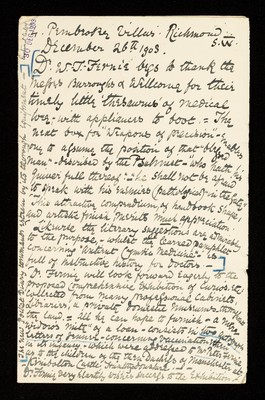 4. Pembroke Villas. Richmond.
S.W.
December 26th 1903.
Dr. W. T. Fernie begs to thank the
Messrs Burroughs & Wellcome for their
timely little thesaurus of medical
lore, with appliances to boot. = The
neat box for "Weapons of precision" enables
one to assume the position of that blessed
man - described by the Psalmist - "who hath his
quiver full thereof" "He shall not be afraid
to speak with his enemies (pathological) in the gate".
This attractive compendium, of handbook shape,
and artistic finish merits much appreciation.
Likewise the literary suggestions are admirable
to the purpose, - whilst the learned pamphlet
concerning "Antient Cymric Medicine" is
full of instructive history for Doctors.
Dr. Fernie will look forward eagerly to the
proposed comprehensive Exhibition of Curios, etc,
collected from many professional cabinets,
and
the land: = all he can hope to furnish - a
"widow's mite" of a loan - consists in two
letters of Jenner - concerning vaccination
in its infancy - which were
the children of the then Duchess of Manchester at
Kimbolton Castle Huntingdonshire.
Dr. Fernie very heartily wishes success to the Exhibition.